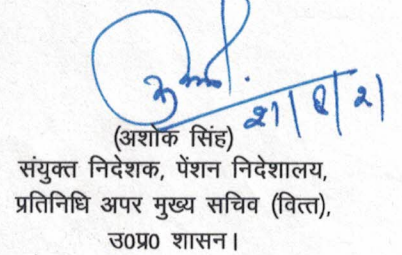 (अशोक सिंह)
संयुक्त निदेशक, पेंशन निदेशालय,
प्रतिनिधि अपर मुख्य सचिव (वित्त),
उ0प्र0 शासन।